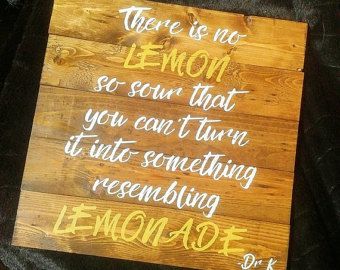 There is no
LEMON
so sour that
you can't turn
it into something
resembling
LEMONADE
-Dr. K